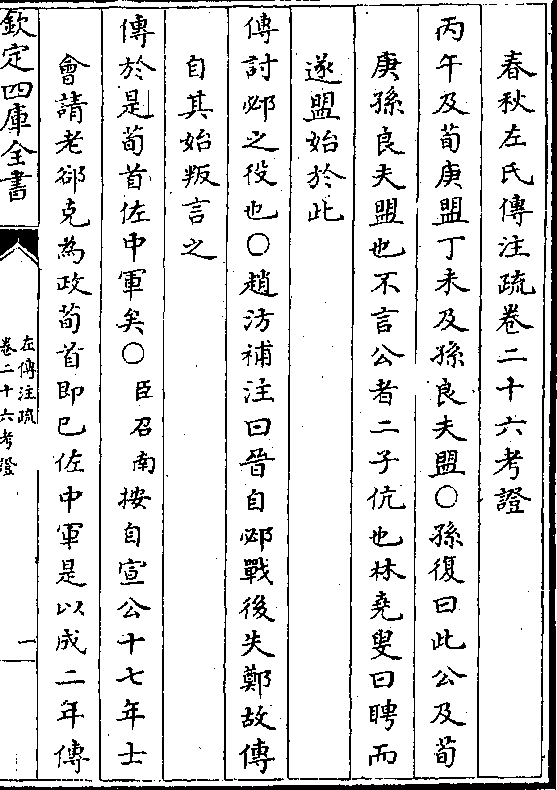 春秋左氏傳注疏卷二十六考證
丙午及荀庚盟丁未及孫良夫盟○孫復曰此公及荀
庚孫良夫盟也不言公者二子伉也林堯叟曰聘而
遂盟始於此
傳討邲之役也○趙汸補注曰晉自邲戰後失鄭故傳
自其始叛言之
傳於是荀首佐中軍矣○臣召南按自宣公十七年士
會請老郤克為政荀首即已佐中軍是以成二年傳
欽定四庫全書
左傳注疏
卷二十六考證
一